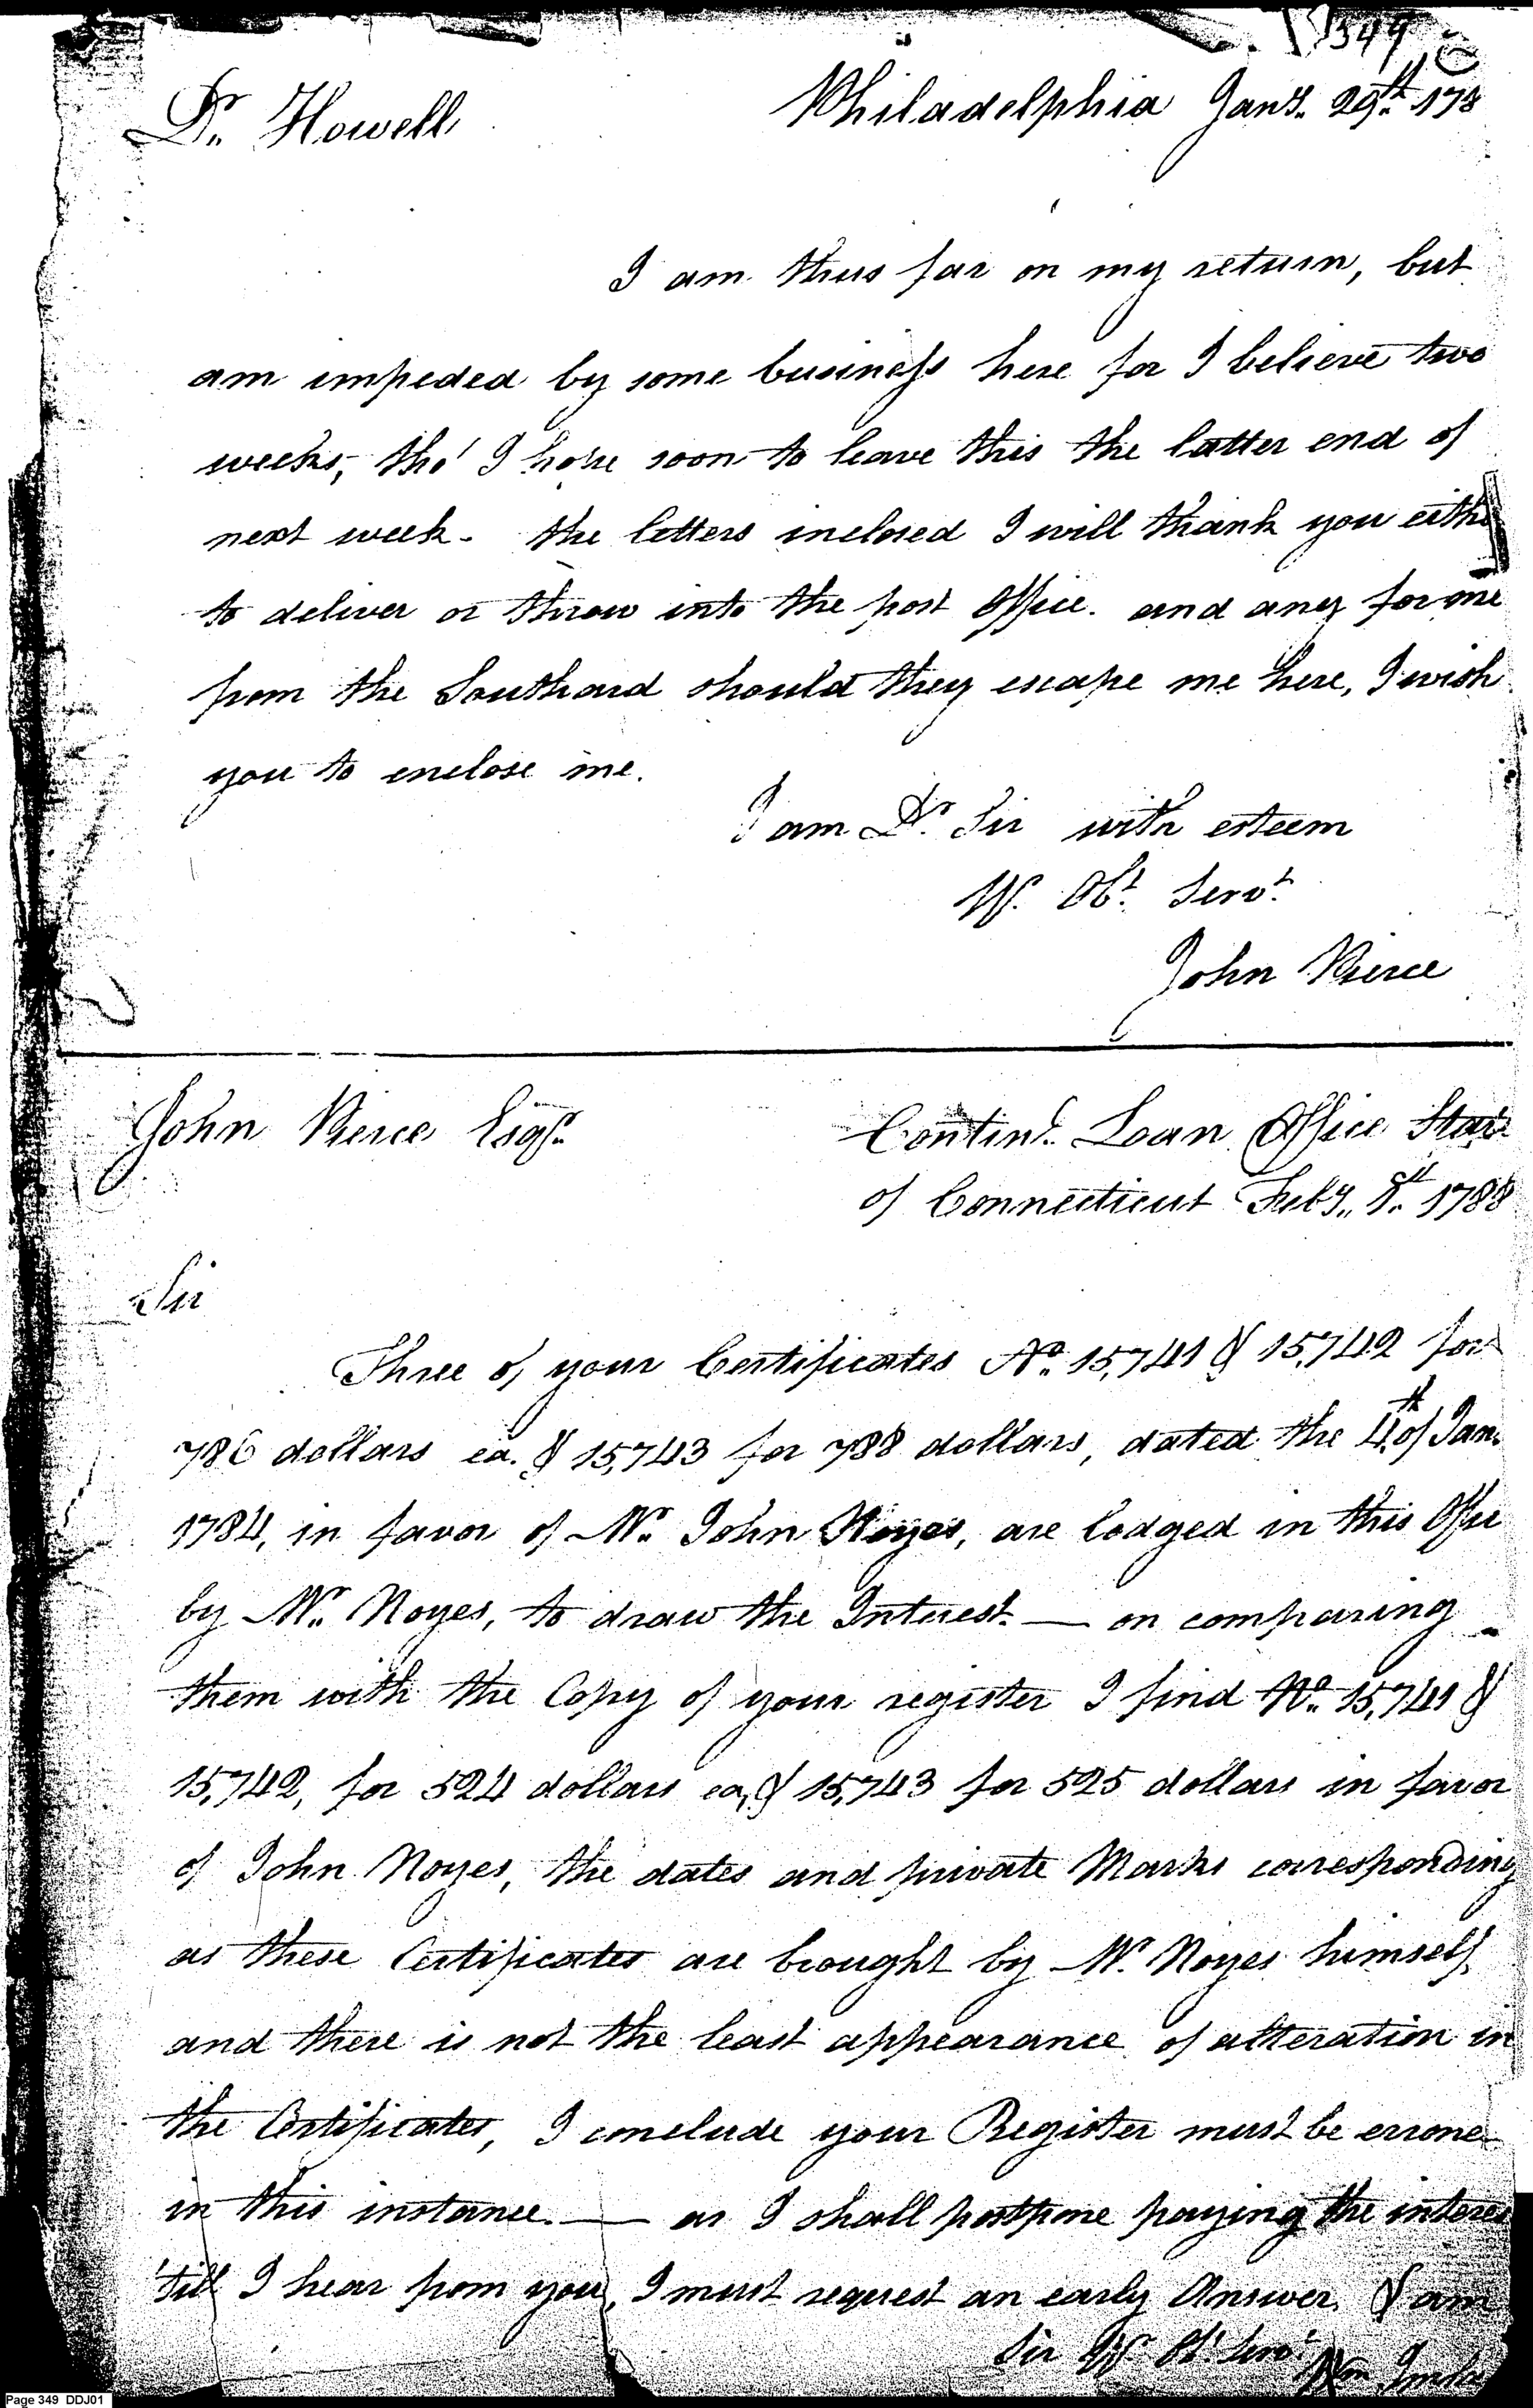 349
Dr. Howell
Philadelphia Jany. 29th. 178
I am thus far on my return, but
am impeded by some business here for I believe two
weeks, tho' I hope soon to leave this the latter end of
next week. the letters inclosed I will thank you eithe
to deliver or throw into the post Office. and any for me
from the Southard should they escape me here, I wish
you to enclose me.
I am Dr. Sir with esteem
Yr. Obt. Servt.
John Pierce
John Pierce Esqr.
Continl. Loan Office State
of Connecticut Feby. 8th. 1788
Sir
Three of your Certificates No. 15,741 & 15,742 for
786 dollars ea. & 15,743 for 788 dollars, dated the 4th of Jan.
1784, in favor of Mr. John Noyes, are lodged in this Office
by Mr. Noyes, to draw the Interest. — on comparing
them with the Copy of your register I find No. 15,741 &
15,742, for 524 dollars ea, & 15,743 for 525 dollars in favor
of John Noyes, the dates and private Marks corresponding
as these Certificates are brought by Mr. Noyes himself,
and there is not the least appearance of alteration in
the Certificates, I conclude your Register must be errone
in this instance. — as I shall postpone paying the interes
'till I hear from you, I must request an early Answer. & am
Sir Yr Ot. Servt.
Wm Imla
Page 349 DDJ01